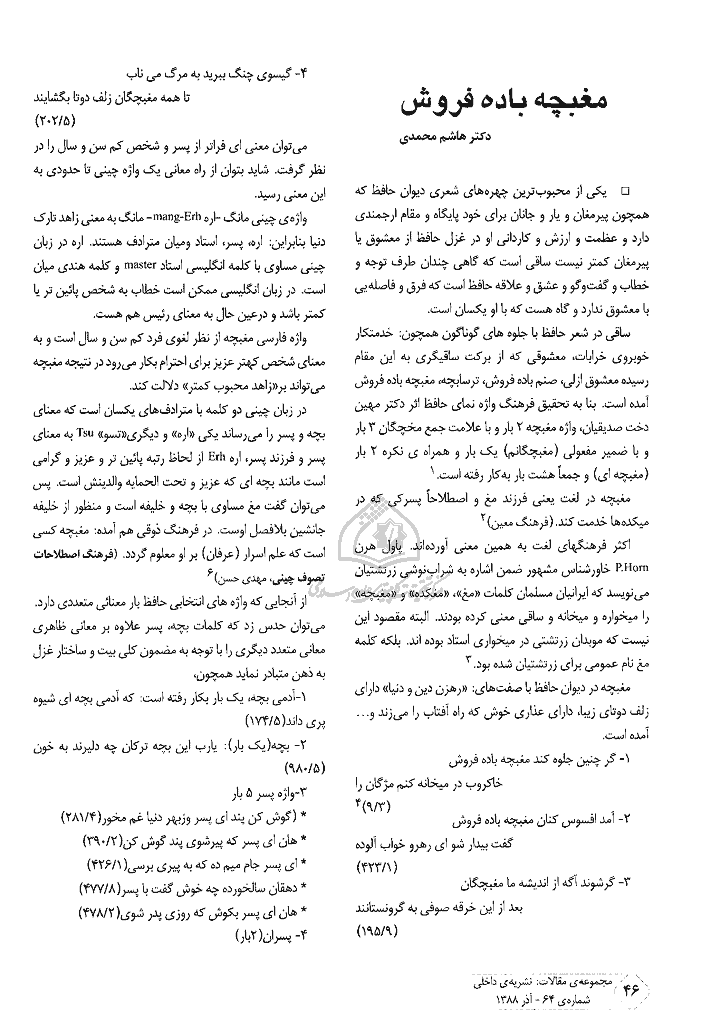 مغبچه باده فروش
دکتر هاشم محمدی
□ یکی از محبوب‌ترین چهره‌های شعری دیوان حافظ که
همچون پیرمغان و یار و جانان برای خود پایگاه و مقام ارجمندی
دارد و عظمت و ارزش و کاردانی او در غزل حافظ از معشوق یا
پیرمغان کمتر نیست ساقی است که گاهی چندان طرف توجه و
خطاب و گفت‌وگو و عشق و علاقه حافظ است که فرق و فاصله‌یی
با معشوق ندارد و گاه هست که با او یکسان است.
ساقی در شعر حافظ با جلوه های گوناگون همچون: خدمتکار
خوبروی خرابات، معشوقی که از برکت ساقیگری به این مقام
رسیده معشوق ازلی، صنم باده فروش، ترسابچه، مغبچه باده فروش
آمده است. بنا به تحقیق فرهنگ واژه نمای حافظ اثر دکتر مهین
دخت صدیقیان، واژه مغبچه ۲ بار و با علامت جمع مخچگان ۳ بار
و با ضمیر مفعولی (مغبچگانم) یک بار و همراه ی نکره ۲ بار
(مغبچه ای) و جمعاً هشت بار به‌کار رفته است.۱
مغبچه در لغت یعنی فرزند مغ و اصطلاحاً پسرکی که در
میکده‌ها خدمت کند. (فرهنگ معین)۲
اکثر فرهنگهای لغت به همین معنی آورده‌اند. پاول هرن
P.Horn خاورشناس مشهور ضمن اشاره به شراب‌نوشی زرتشتیان
می‌نویسد که ایرانیان مسلمان کلمات «مغ»، «مغکده» و «مغبچه»
را میخواره و میخانه و ساقی معنی کرده بودند. البته مقصود این
نیست که موبدان زرتشتی در میخواری استاد بوده اند. بلکه کلمه
مغ نام عمومی برای زرتشتیان شده بود.۳
مغبچه در دیوان حافظ با صفت‌های: «رهزن دین و دنیا» دارای
زلف دوتای زیبا، دارای عذاری خوش که راه آفتاب را می‌زند و...
آمده است.
۱- گر چنین جلوه کند مغبچه باده فروش
خاکروب در میخانه کنم مژگان را
(۹/۳)۴
۲- آمد افسوس کنان مغبچه باده فروش
گفت بیدار شو ای رهرو خواب آلوده
(۴۲۳/۱)
۳- گرشوند آگه از اندیشه ما مغبچگان
بعد از این خرقه صوفی به گرونستانند
(۱۹۵/۹)
۴- گیسوی چنگ ببرید به مرگ می ناب
تا همه مغبچگان زلف دوتا بگشایند
(۲۰۲/۵)
می‌توان معنی ای فراتر از پسر و شخص کم سن و سال را در
نظر گرفت. شاید بتوان از راه معانی یک واژه چینی تا حدودی به
این معنی رسید.
واژه‌ی چینی مانگ -اره mang-Erh- مانگ به معنی زاهد تارک
دنیا بنابراین: اره، پسر، استاد ومیان مترادف هستند. اره در زبان
چینی مساوی با کلمه انگلیسی استاد master و کلمه هندی میان
است. در زبان انگلیسی ممکن است خطاب به شخص پائین تر یا
کمتر باشد و درعین حال به معنای رئیس هم هست.
واژه فارسی مغبچه از نظر لغوی فرد کم سن و سال است و به
معنای شخص کهتر عزیز برای احترام بکار می‌رود در نتیجه مغبچه
می‌تواند بر«زاهد محبوب کمتر» دلالت کند.
در زبان چینی دو کلمه با مترادف‌های یکسان است که معنای
بچه و پسر را می‌رساند یکی «اره» و دیگری«تسو» Tsu به معنای
پسر و فرزند پسر، اره Erh از لحاظ رتبه پائین تر و عزیز و گرامی
است مانند بچه ای که عزیز و تحت الحمایه والدینش است. پس
می‌توان گفت مغ مساوی با بچه و خلیفه است و منظور از خلیفه
جانشین بلافصل اوست. در فرهنگ ذوقی هم آمده: مغبچه کسی
است که علم اسرار (عرفان) بر او معلوم گردد. (فرهنگ اصطلاحات
تصوف چینی، مهدی حسن)۶
از آنجایی که واژه های انتخابی حافظ بار معنائی متعددی دارد.
می‌توان حدس زد که کلمات بچه، پسر علاوه بر معانی ظاهری
معانی متعدد دیگری را با توجه به مضمون کلی بیت و ساختار غزل
به ذهن متبادر نماید همچون،
۱-آدمی بچه، یک بار بکار رفته است: که آدمی بچه ای شیوه
پری داند(۱۷۴/۵)
۲- بچه(یک بار): یارب این بچه ترکان چه دلیرند به خون
(۹۸۰/۵)
۳-واژه پسر ۵ بار
* (گوش کن پند ای پسر وزبهر دنیا غم مخور(۲۸۱/۴)
* هان ای پسر که پیرشوی پند گوش کن(۳۹۰/۲)
* ای پسر جام میم ده که به پیری برسی(۴۲۶/۱)
* دهقان سالخورده چه خوش گفت با پسر(۴۷۷/۸)
* هان ای پسر بکوش که روزی پدر شوی(۴۷۸/۲)
۴- پسران(۲بار)
۴۶
مجموعه‌ی مقالات: نشریه‌ی داخلی
شماره‌ی ۶۴ - آذر ۱۳۸۸